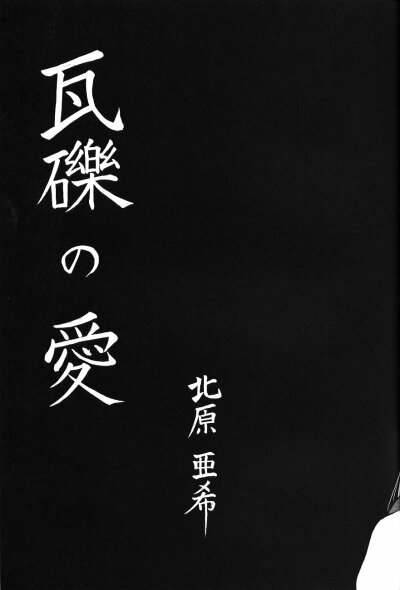 瓦礫の愛
北原 亜希